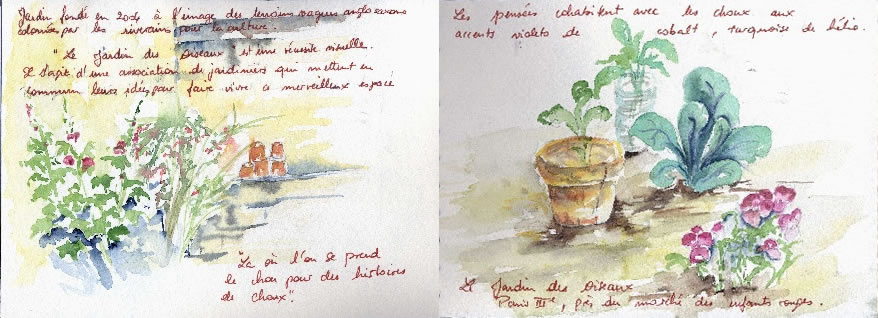 Jardin fondé en 2004 à l'image des terrains vagues anglo saxons
colonisés par les riverains pour la culture.
"Le Jardin des Oiseaux" est une réussite visuelle.
Il s'agit d'une association de jardiniers qui mettent en
commun leurs idées pour faire vivre ce merveilleux espace
"Là où l'on se prend
le chou pour des histoires
de choux".
Les pensées cohabitent avec les choux aux
accents violets de cobalt, turquoise de hélio.
Le Jardin des Oiseaux
Paris IIIe, près du marché des enfants rouges.